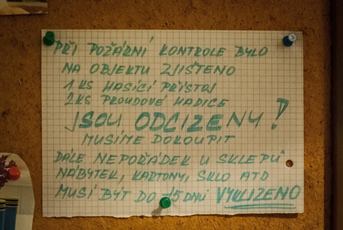 PŘI POŽÁRNÍ KONTROLE BYLO
NA OBJEKTU ZJIŠTENO
1 KS HASÍCÍ PŘÍSTOJ
2 KS PROUDOVÉ HADICE
JSOU ODCIZENY!
MUSÍME DOKOUPIT
DÁLE NEPOŘÁDEK U SKLEPŮ
NÁBYTEK, KARTONY, SKLO ATD
MUSÍ BÝT DO 15 DNÍ VYKLIZENO